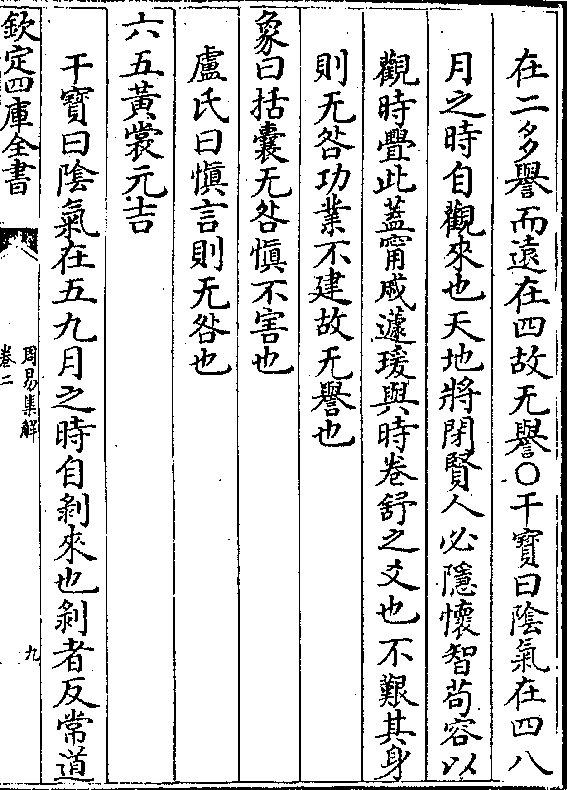 在二多譽而遠在四故无譽○干寶曰陰氣在四八
月之時自觀來也天地將閉賢人必隱懷智茍容以
觀時舋此蓋甯戚蘧瑗與時卷舒之爻也不艱其身
則无咎功業不建故无譽也
象曰括囊无咎愼不害也
盧氏曰愼言則无咎也
六五黃裳元吉
干寶曰陰氣在五九月之時自剝來也剝者反常道
欽定四庫全書
周易集解
卷二
九